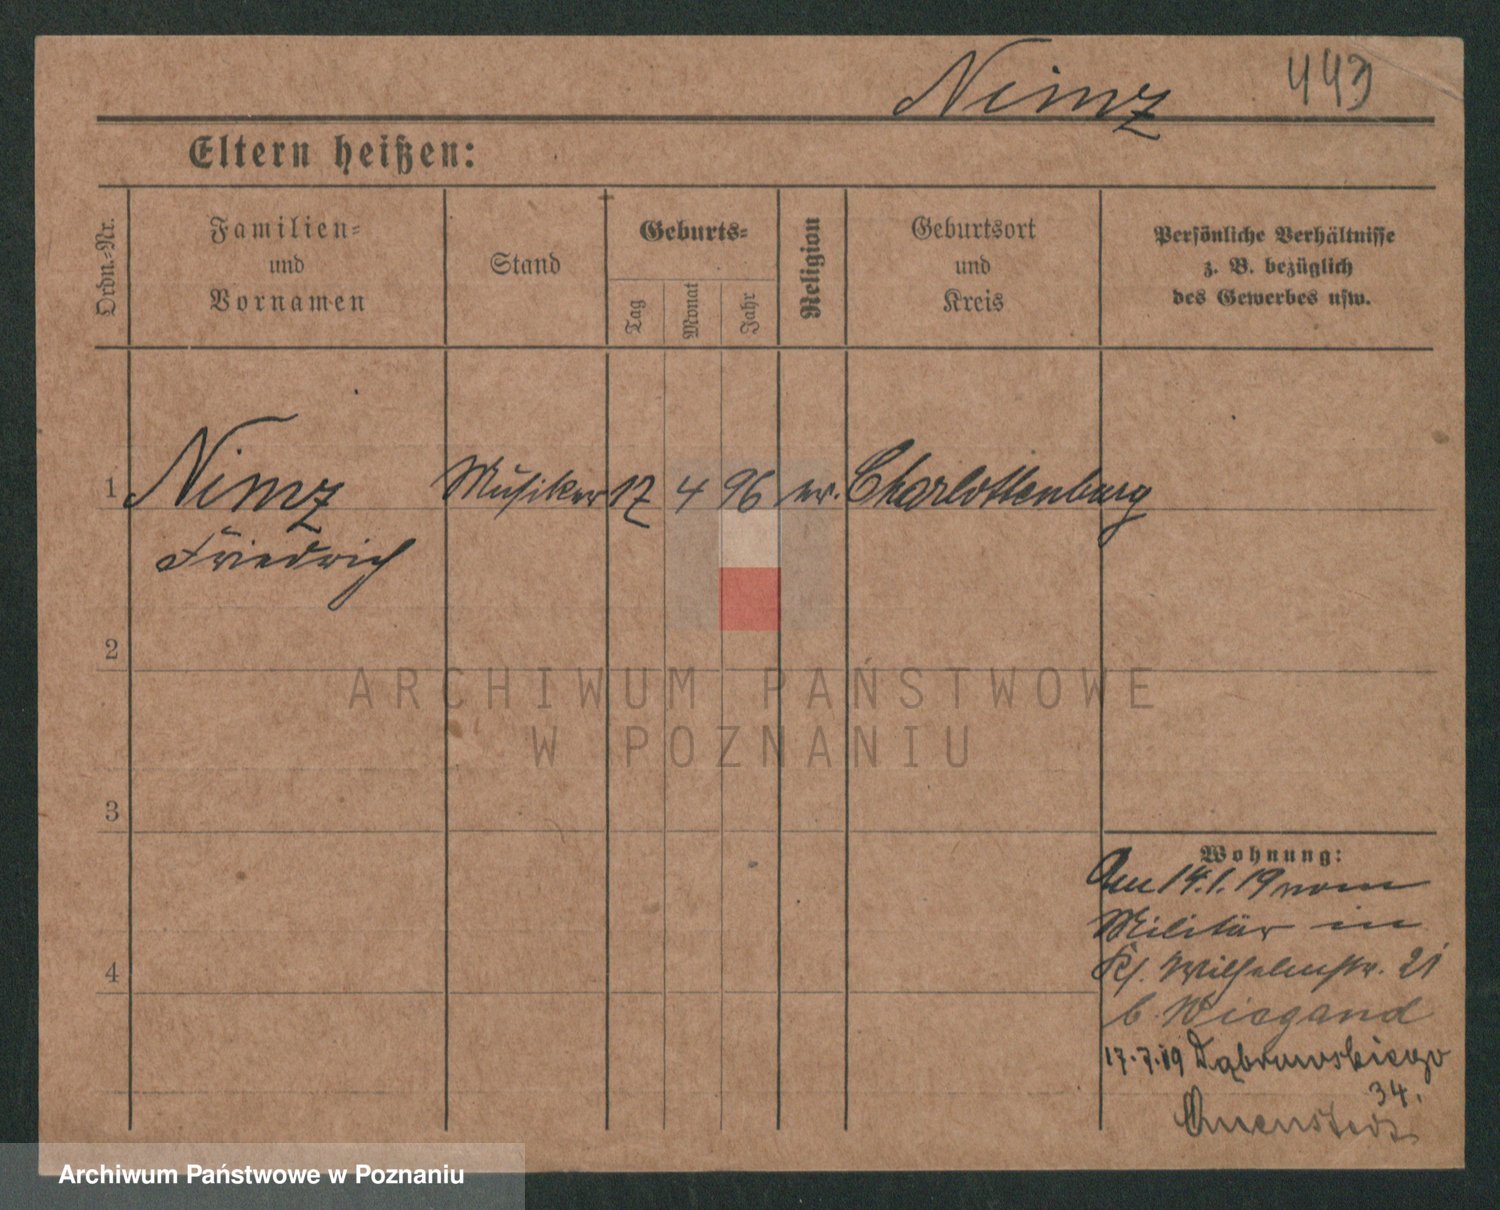 Nimz 443
Eltern heißen:
Ordn.-Nr.
Familien-
und
Vornamen
Stand
Geburts-
Tag
Monat
Jahr
Religion
Geburtsort
und
Kreis
Persönliche Verhältnisse
z. B. bezüglich
des Gewerbes usw.
1 Nimz Musiker 17 4 96 ev. Charlottenburg
Friedrich
2
3
4
Wohnung:
Am 14.1.19 vom
Militär in
Kl. Wilhelmstr. 21
b. Wiegand
17.7.19 Dąbrowskiego
34.
ARCHIWUM PAŃSTWOWE
W POZNANIU
Archiwum Państwowe w Poznaniu